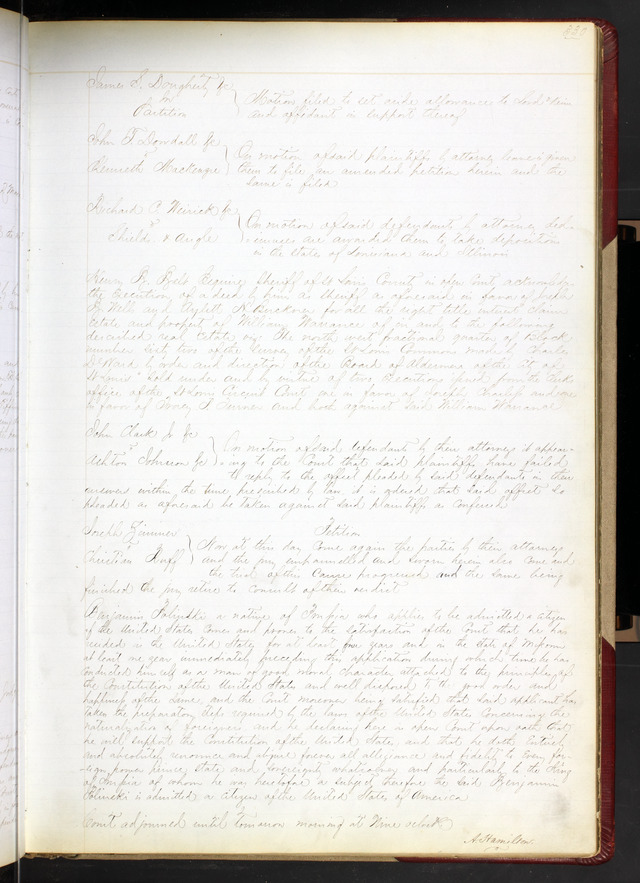 James S. Dougherty &c
on
Partition
Motion filed to set aside allowance to said
and affidavit in support thereof
John T Dowdall &c
vs
Kenneth Mackenzie
On motion of said plaintiffs by attorney leave is given
them to file an amended petition herein and the
same is filed
Richard C. &c
vs
Shields & Angle
On motion of said defendants by attorney ded-
imuses are awarded them to take depositions
in the State of Louisiana and Illinois
Henry B. Belt Esquire Sheriff of St Louis County in open Court acknowledges
the execution of a deed by him as Sheriff as aforesaid in favor of
Wells and Buckner for all the right title interest claim
estate and property of William Warrance of in and to the following
described real estate viz: The north west fractional quarter of Block
number sixty two of the survey of the St Louis Commons made by Charles
Ward by order and direction of the Board of Aldermen of the city of
St Louis sold under and by virtue of two executions issued from the Clerks
office of the St Louis Circuit Court one in favor of Joseph and one
in favor of Turner and both against said William Warrance
John Clark Jr &c
vs
Ashton Johnson &c
On motion of said defendants by their attorney it appear-
ing to the Court that said plaintiffs have failed
to reply to the offset pleaded by said defendants in their
answer within the time prescribed by law it is ordered that said offset so
pleaded as aforesaid be taken against said plaintiffs as confessed
Joseph Zimmer
vs
Christian Ruff
Petition
Now at this day come again the parties by their attorneys
and the jury empannelled and sworn herein also come and
the trial of this cause progressed and the same being
finished the jury retire to consider of their verdict
Benjamin a native of who applies to be admitted a citizen
of the United States comes and proves to the satisfaction of the Court that he has
resided in the United States for at least five years and in the State of Missouri
at least one year immediately preceding this application during which time he has
conducted himself as a man of good moral character attached to the principles of
the Constitution of the United States and well disposed to the good order and
happiness of the same, and the Court moreover being satisfied that said applicant has
taken the preparatory steps required by the laws of the United States concerning the
naturalization of foreigners and he declaring here in open Court upon oath that
he will support the Constitution of the United States, and that he doth entirely
and absolutely renounce and abjure forever all allegiance and fidelity to every for-
eign power prince, State and Sovereignty whatsoever and particularly to the King
of of whom he was heretofore a subject therefore the said Benjamin
is admitted a citizen of the United States of America
Court adjourned until tomorrow morning at Nine oclock
A. Hamilton